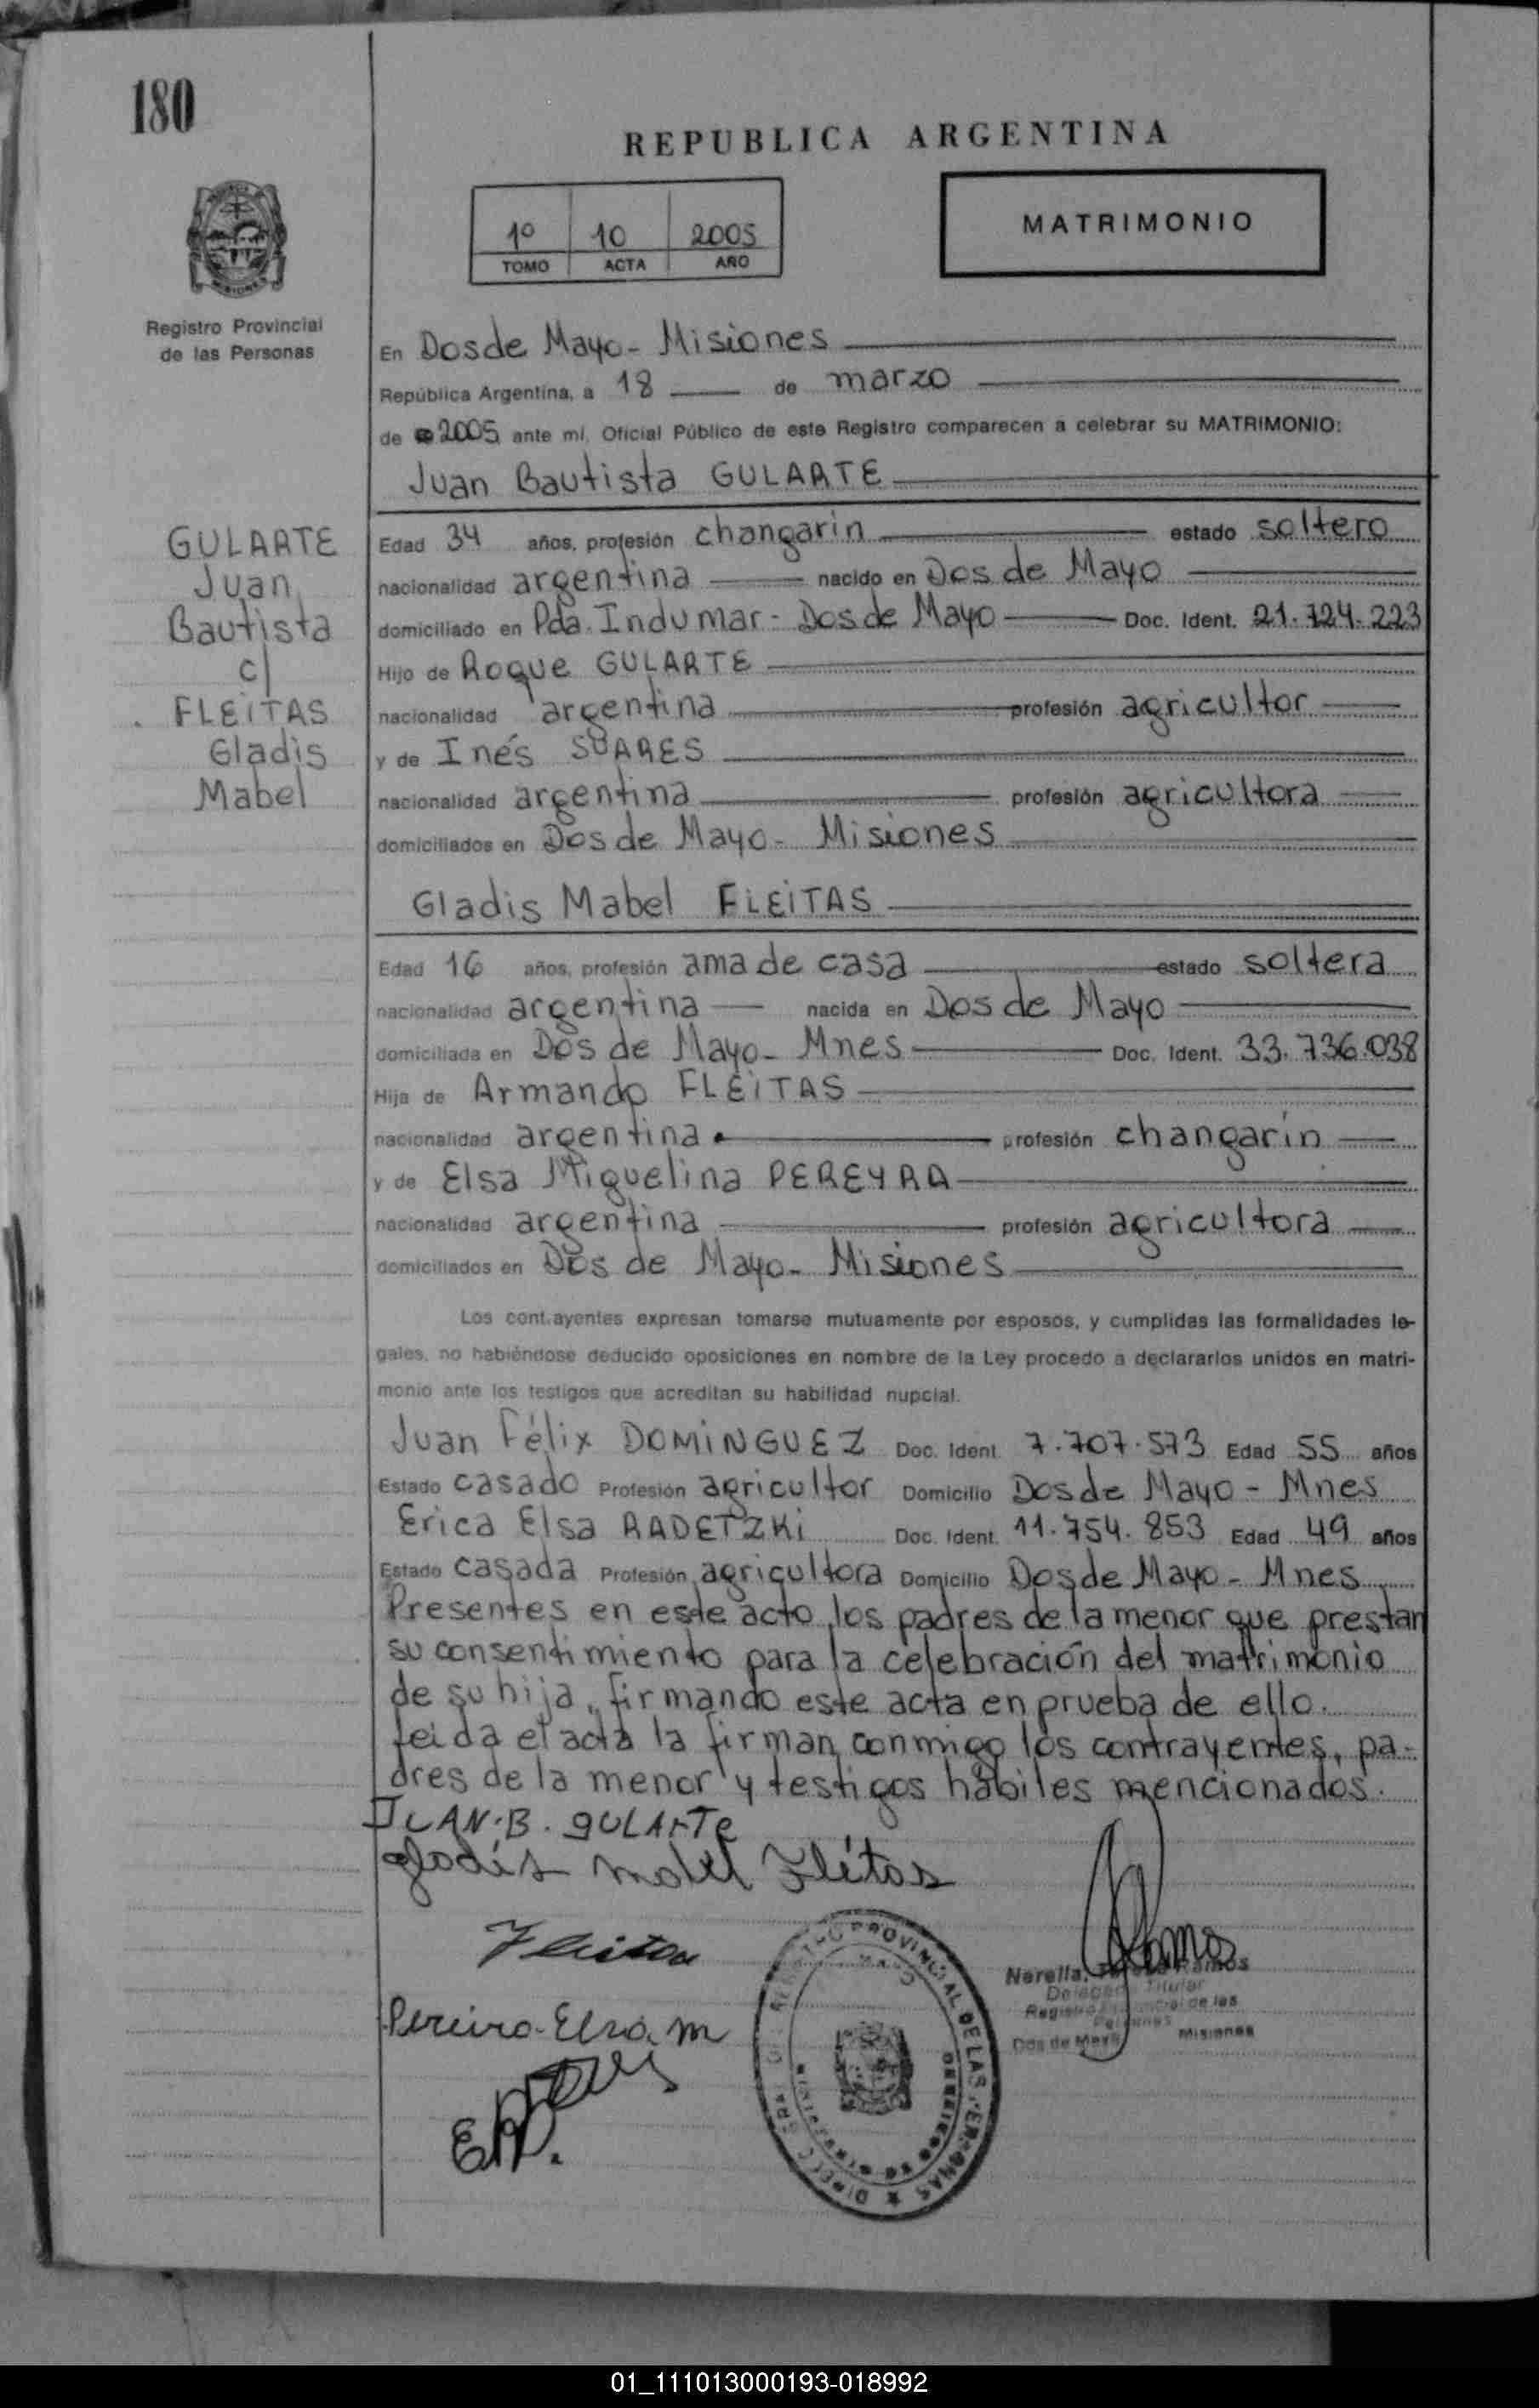 180
REPUBLICA ARGENTINA
1º 10 2005
TOMO ACTA AÑO
MATRIMONIO
Registro Provincial
de las Personas
En Dos de Mayo - Misiones
República Argentina, a 18 de marzo
de 2005 ante mí, Oficial Público de este Registro comparecen a celebrar su MATRIMONIO:
Juan Bautista GULARTE
GULARTE
Juan
Bautista
c/
FLEITAS
Gladis
Mabel
Edad 34 años, profesión changarin estado soltero
nacionalidad argentina nacido en Dos de Mayo
domiciliado en Pda. Indumar - Dos de Mayo Doc. Ident. 21.724.223
Hijo de Roque GULARTE
nacionalidad argentina profesión agricultor
y de Inés SUARES
nacionalidad argentina profesión agricultora
domiciliados en Dos de Mayo - Misiones
Gladis Mabel FLEITAS
Edad 16 años, profesión ama de casa estado soltera
nacionalidad argentina nacida en Dos de Mayo
domiciliada en Dos de Mayo - Mnes Doc. Ident. 33.736.038
Hija de Armando FLEITAS
nacionalidad argentina profesión changarín
y de Elsa Miguelina PEREYRA
nacionalidad argentina profesión agricultora
domiciliados en Dos de Mayo - Misiones
Los cont.ayentes expresan tomarse mutuamente por esposos, y cumplidas las formalidades le-
gales, no habiéndose deducido oposiciones en nombre de la Ley procedo a declararlos unidos en matri-
monio ante los testigos que acreditan su habilidad nupcial.
Juan Félix DOMINGUEZ Doc. Ident. 7.707.573 Edad 55 años
Estado casado Profesión agricultor Domicilio Dos de Mayo - Mnes
Erica Elsa RADETZKI Doc. Ident. 11.754.853 Edad 49 años
Estado casada Profesión agricultora Domicilio Dos de Mayo - Mnes
Presentes en este acto los padres de la menor que prestan
su consentimiento para la celebración del matrimonio
de su hija, firmando este acta en prueba de ello.
Leida el acta la firman conmigo los contrayentes, pa-
dres de la menor y testigos hábiles mencionados.
JUAN.B. GULARTE
Fleitas
Pereira Elsa. M
Ramos
Delegada Titular
Registro Provincial de las
Personas
Dos de Mayo Misiones
PROVINCIAL DE LAS PERSONAS
01_111013000193-018992